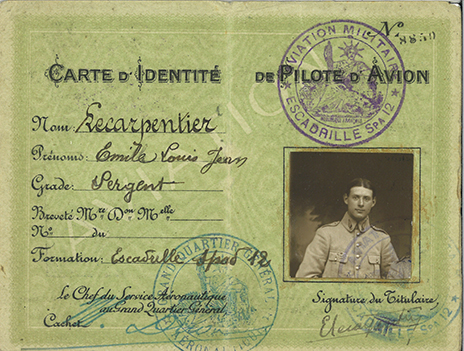 AVIATION MILITAIRE
ESCADRILLE SPA 12
No 8850
CARTE D'IDENTITÉ DE PILOTE D'AVION
Nom: Lecarpentier
Prénoms: Emile Louis Jean
Grade: Sergent
Breveté Mre Don Melle
No du
Formation: Escadrille Spad 12
GRAND QUARTIER GÉNÉRAL
le Chef du Service Aéronautique
au Grand Quartier Général,
Cachet
Signature du Titulaire,
ESCADRILLE SPA 12